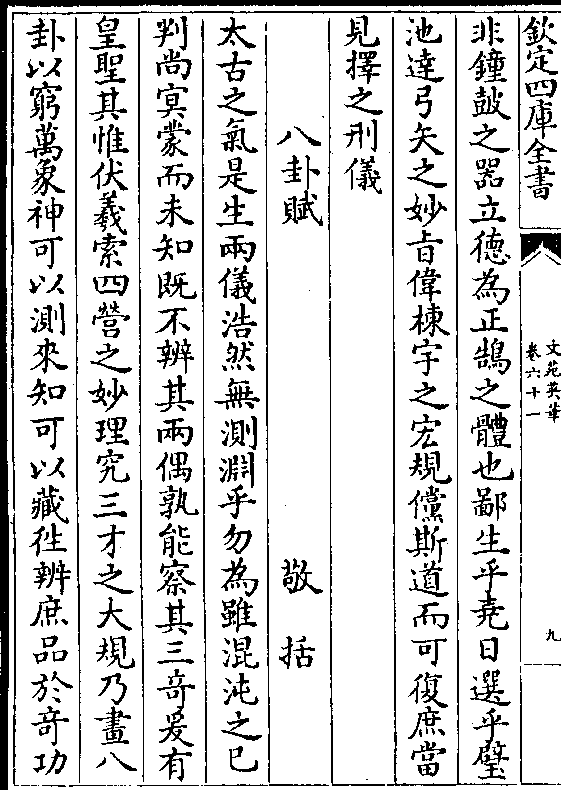 欽定四庫全書
文苑英華
卷六十一
九
非鐘鼓之器立德為正鵠之體也鄙生乎堯日選乎璧
池達弓矢之妙㫖偉棟宇之宏規儻斯道而可復庶當
見擇之刑儀
八卦賦 敬括
太古之氣是生兩儀浩然無測淵乎勿為雖混沌之已
判尚冥蒙而未知既不辨其兩偶孰能察其三竒爰有
皇聖其惟伏羲索四營之妙理究三才之大規乃畫八
卦以窮萬象神可以測來知可以藏徃辨庶品於竒功